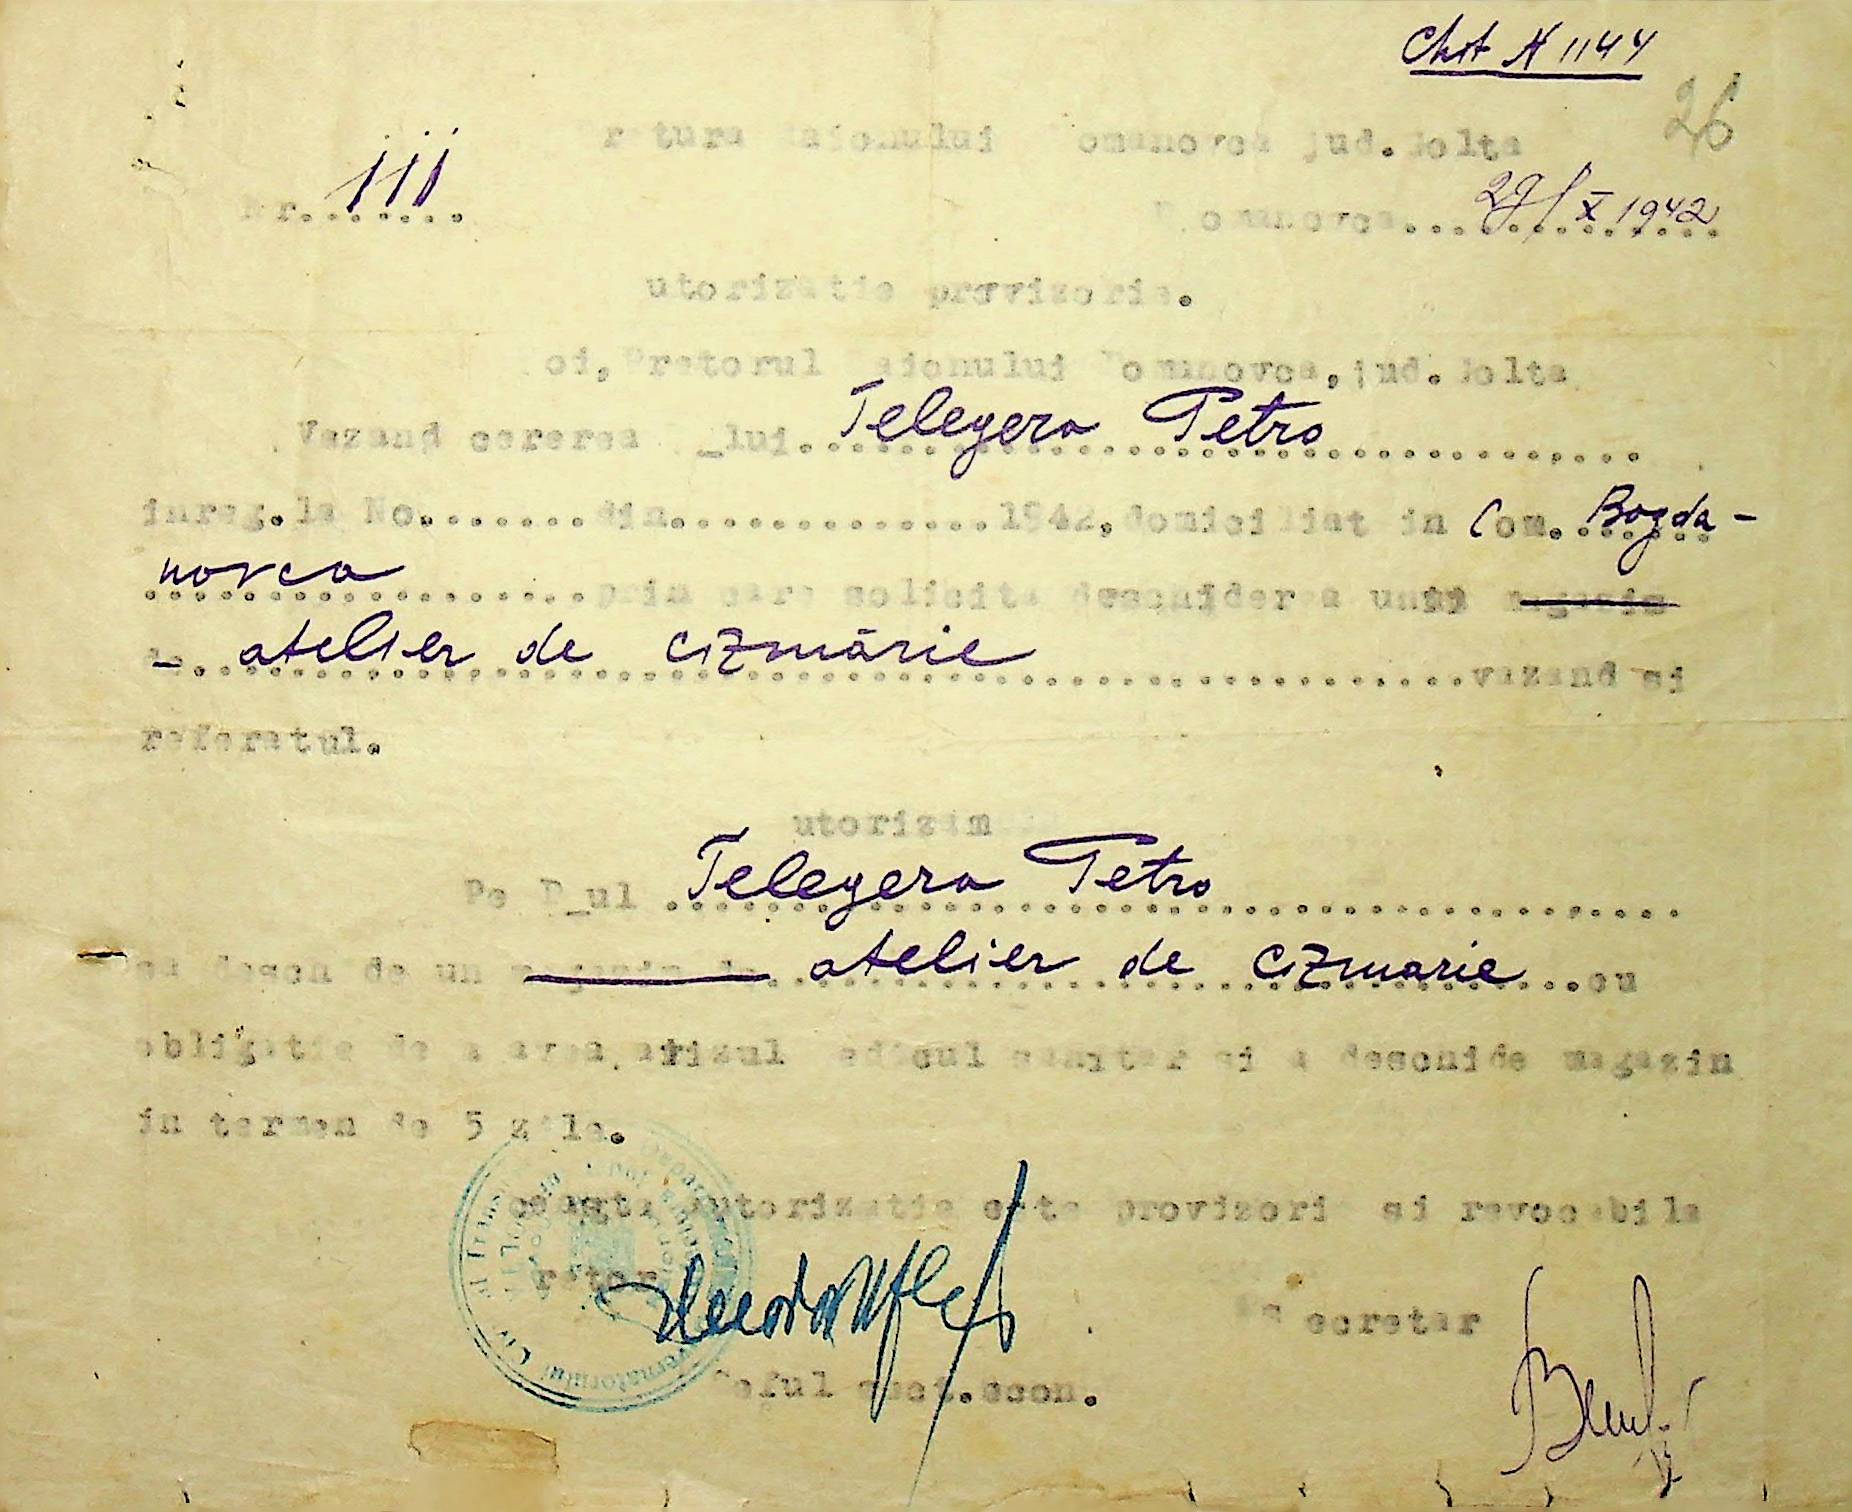 Chit N 1144
26
Pretura Raionului Romanovca jud. Golta
Nr. 111
Romanovca... 27/X 1942
Autorizatie provizorie.
Noi, Pretorul Raionului Romanovca, jud. Golta
Vazand cererea _lui. Telegera Petro
inreg. la No........din..............1942, domiciliat in Com. Bogda-
novca prin care solicita deschiderea unui magazin
de atelier de cizmărie vazand si
referatul.
Autorizam
Pe D_ul Telegera Petro
sa deschide un magazin de atelier de cizmarie cu
obligatie de a avea avizul Medicul sanitar si a deschide magazin
in termen de 5 zile.
Aceasta autorizatie este provizorie si revocabila
Pretor
Secretar
Seful sect. econ.